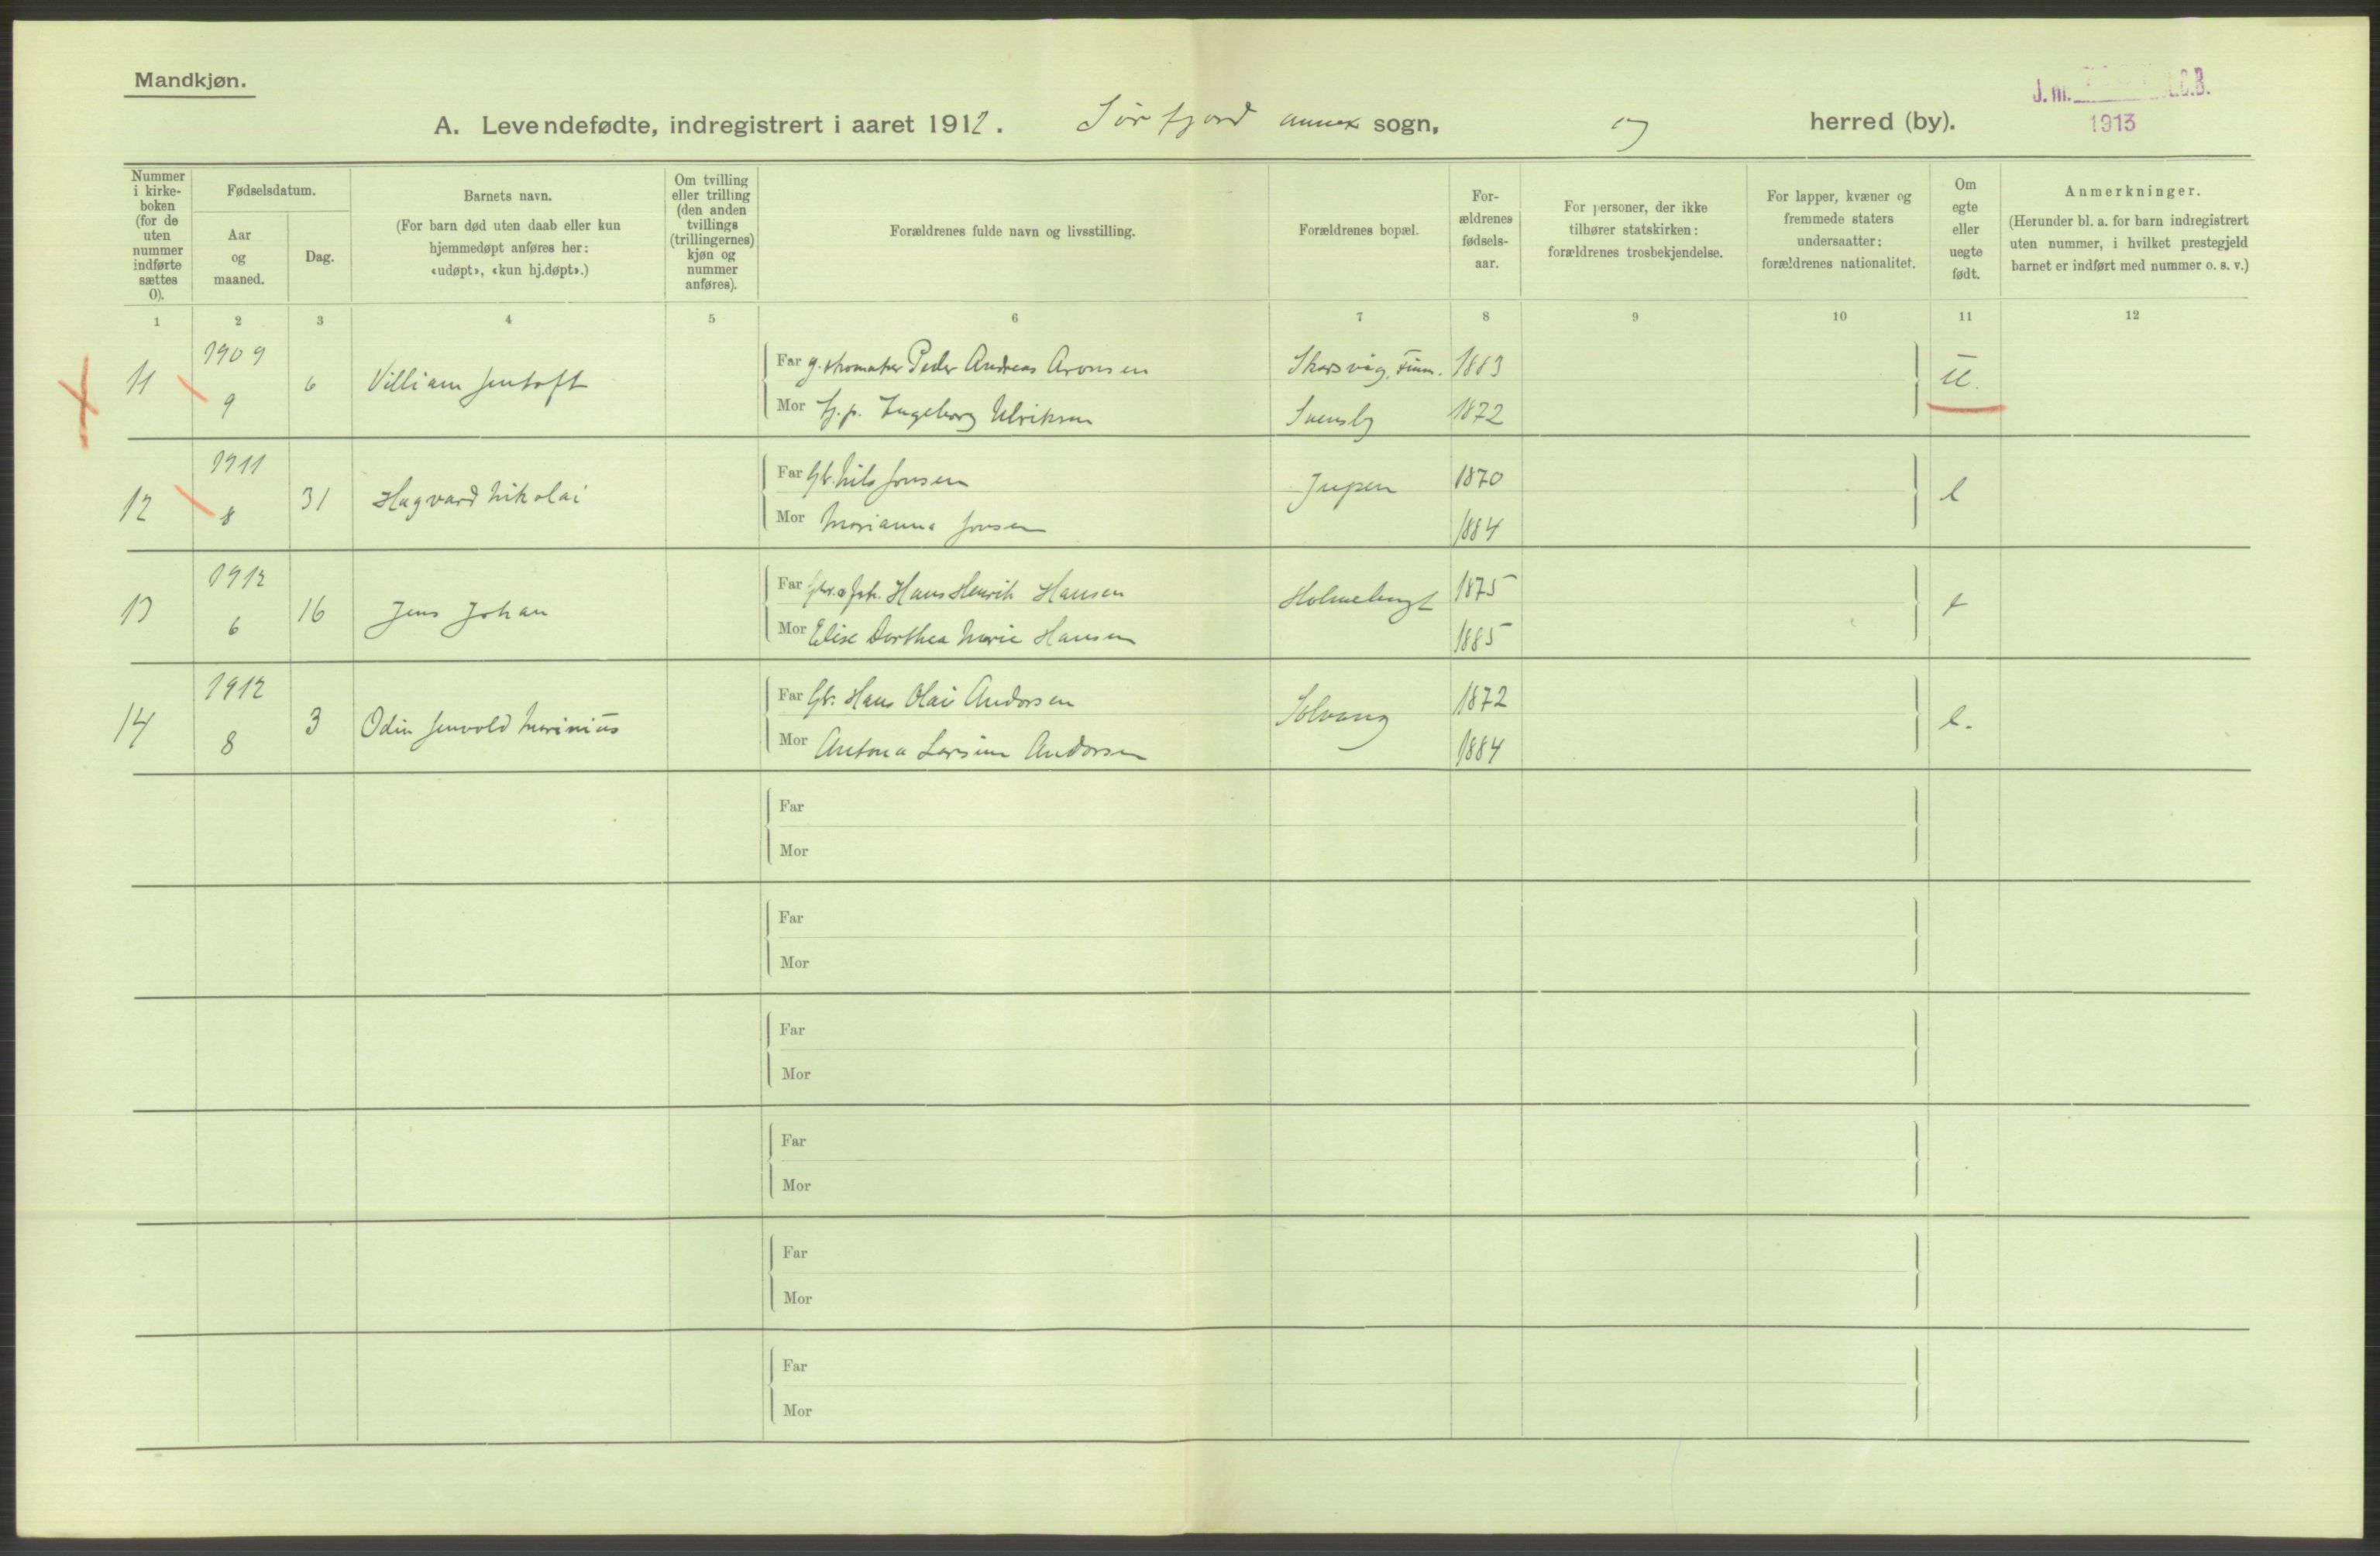 Mandkjøn.
J.nr. S.C.B.
1913
A. Levendefødte, indregistrert i aaret 1912. Sørfjord annex sogn, herred (by).
Nummer i kirkeboken (for de uten nummer indførte sættes 0).
Fødselsdatum.
Aar og maaned.
Dag.
Barnets navn.
(For barn død uten daab eller kun hjemmedøpt anføres her: «udøpt», «kun hj.døpt».)
Om tvilling eller trilling (den anden tvillings (trillingernes) kjøn og nummer anføres).
Forældrenes fulde navn og livsstilling.
Forældrenes bopæl.
Forældrenes fødselsaar.
For personer, der ikke tilhører statskirken: forældrenes trosbekjendelse.
For lapper, kvæner og fremmede staters undersaatter: forældrenes nationalitet.
Om egte eller uegte født.
Anmerkninger.
(Herunder bl. a. for barn indregistrert uten nummer, i hvilket prestegjeld barnet er indført med nummer o. s. v.)
1 2 3 4 5 6 7 8 9 10 11 12
11 1909 9 6 Villiam Jentoft
Far g. skomaker Peder Andreas Aronsen Skarsvåg, Finm. 1863 U.
Mor Ingeborg Ulriksen Svensby 1872
12 1911 8 31 Hagvard Nikolai
Far Gbr. Nils Jonsen Jupen 1870 e
Mor Marianna Jonsen 1884
13 1912 6 16 Jens Johan
Far Hans Henrik Hansen Holmebugt 1875 e
Mor Elise Dorthea Marie Hansen 1885
14 1912 8 3 Odin Jenvold Marinius
Far Gbr. Hans Olai Andorsen Solvang 1872 e.
Mor Antona Larsine Andorsen 1884
Far
Mor
Far
Mor
Far
Mor
Far
Mor
Far
Mor
Far
Mor